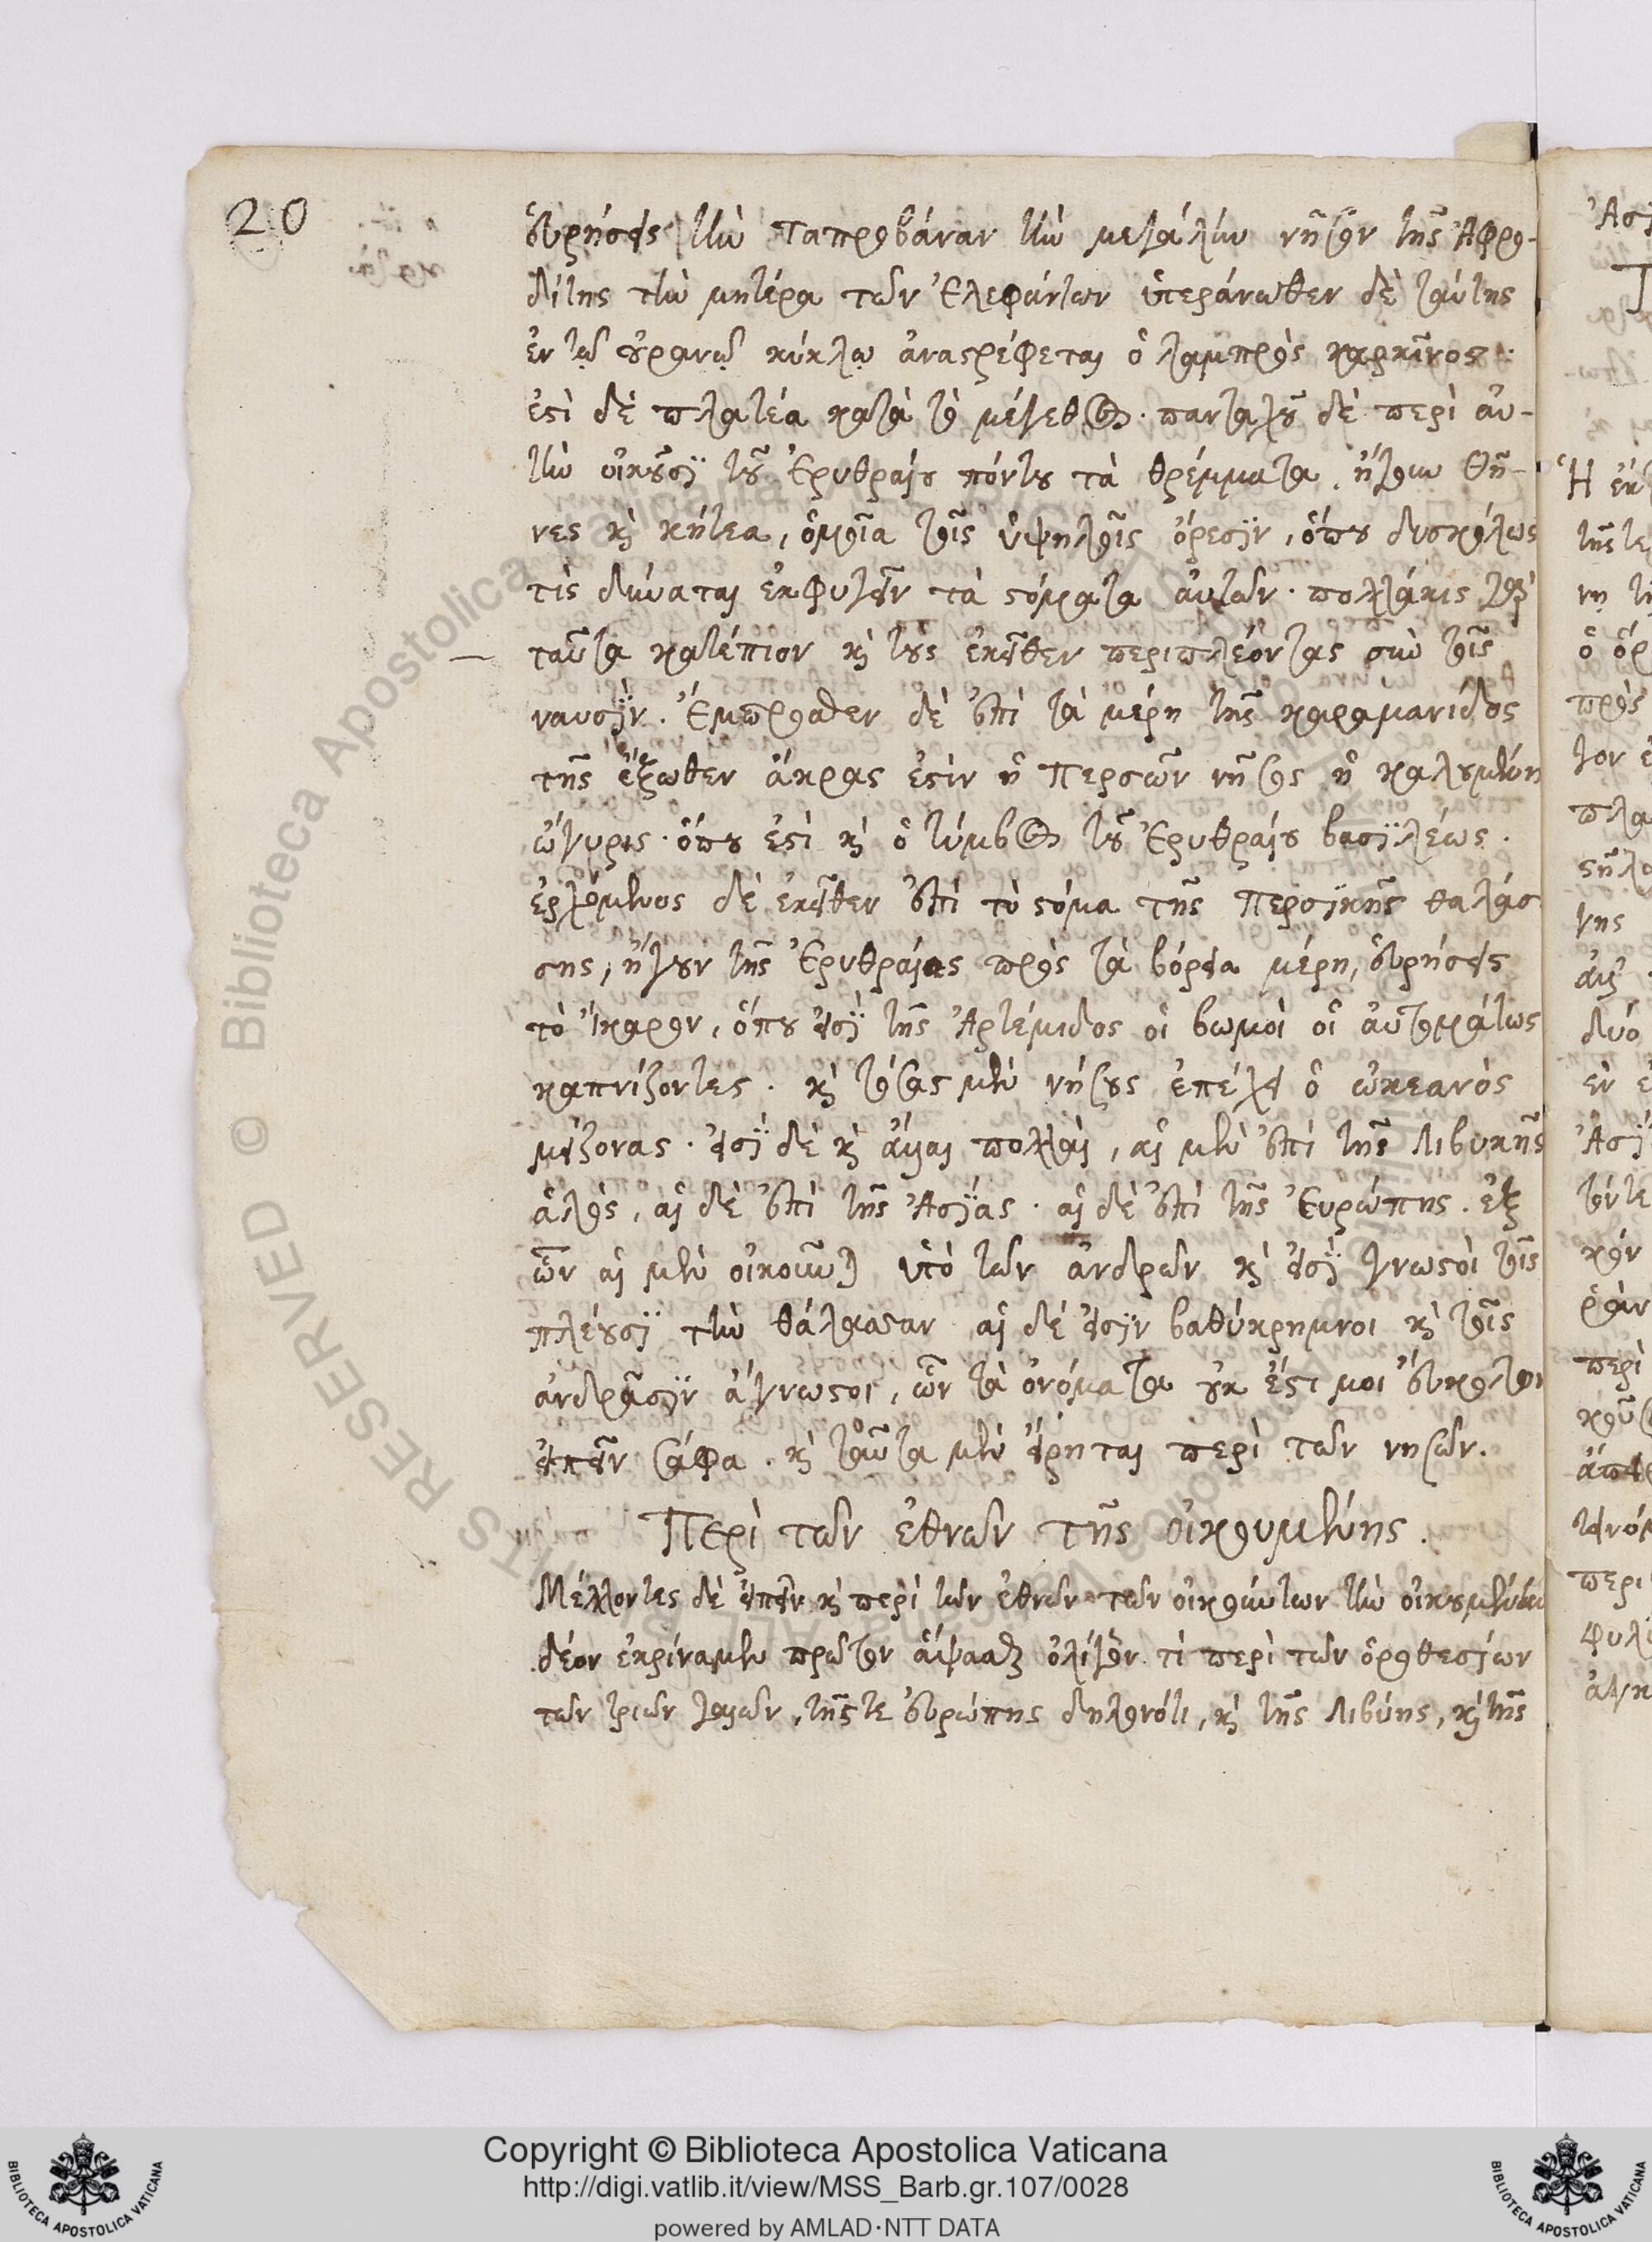 20
εὑρήσεις τὴν Ταπροβάναν τὴν μεγάλην νῆσον τῆς Ἀφρο-
δίτης τὴν μητέρα τῶν Ἐλεφάντων ὑπεράνωθεν δὲ ταύτης
ἐν τῷ οὐρανῷ κύκλῳ ἀναστρέφεται ὁ λαμπρὸς καρκῖνος.
ἐστὶ δὲ πλατέα κατὰ τὸ μέγεθος. πανταχοῦ δὲ περὶ αὐ-
τὴν οἰκοῦσι τοῦ Ἐρυθραίου πόντου τὰ θρέμματα, ἤγουν θῆ-
νες καὶ κήτεα, ὁμοῖα τοῖς ὑψηλοῖς ὄρεσιν, ὅπου δυσκόλως
τὶς δύναται ἐκφυγεῖν τὰ στόματα αὐτῶν. πολλάκις γὰρ
ταῦτα κατέπιον καὶ τοὺς ἐκεῖθεν περιπλέοντας σὺν τοῖς
ναυσὶν. Ἔμπροσθεν δὲ ἐπὶ τὰ μέρη τῆς καραμανίδος
τῆς ἔξωθεν ἄκρας ἐστὶν ἡ Περσῶν νῆσος ἡ καλουμένη
ὤγυρις. ὅπου ἐστὶ καὶ ὁ τύμβος τοῦ Ἐρυθραίου βασιλέως.
ἐρχόμενος δὲ ἐκεῖθεν ἐπὶ τὸ στόμα τῆς Περσικῆς θαλάσ
σης, ἤγουν τῆς Ἐρυθραίας πρὸς τὰ βόρεια μέρη, εὑρήσεις
τὸ Ἴκαρον, ὅπου εἰσὶ τῆς Ἀρτέμιδος οἱ βωμοὶ οἱ αὐτομάτως
καπνίζοντες. καὶ τόσας μὲν νήσους ἐπέχει ὁ ὠκεανὸς
μείζονας. εἰσὶ δὲ καὶ ἄλλαι πολλαὶ, αἱ μὲν ἐπὶ τῆς Λιβυκῆς
ἁλὸς, αἱ δὲ ἐπὶ τῆς Ἀσίας. αἱ δὲ ἐπὶ τῆς Ἐυρώπης. ἐξ
ὧν αἱ μὲν οἰκοῦνται ὑπὸ τῶν ἀνδρῶν καὶ εἰσὶ γνωστοὶ τοῖς
πλέουσι τὴν θάλασσαν αἱ δὲ εἰσὶν βαθύκρημνοι καὶ τοῖς
ἀνδράσιν ἄγνωστοι, ὧν τὰ ὀνόματα οὐκ ἔστι μοι εὔκολον
εἰπεῖν σάφα. καὶ ταῦτα μὲν εἴρηται περὶ τῶν νήσων.
Περὶ τῶν ἐθνῶν τῆς οἰκουμένης.
Μέλλοντες δὲ εἰπεῖν καὶ περὶ τῶν ἐθνῶν τῶν οἰκούντων τὴν οἰκουμένην
δέον ἐκρίναμεν πρῶτον ἅψασθαι ὀλίγον τὶ περὶ τῶν ὁροθεσίων
τῶν τριῶν γαιῶν, τῆς τε εὐρώπης δηλονότι, καὶ τῆς Λιβύης, καὶ τῆς
Copyright © Biblioteca Apostolica Vaticana
http://digi.vatlib.it/view/MSS_Barb.gr.107/0028
powered by AMLAD·NTT DATA